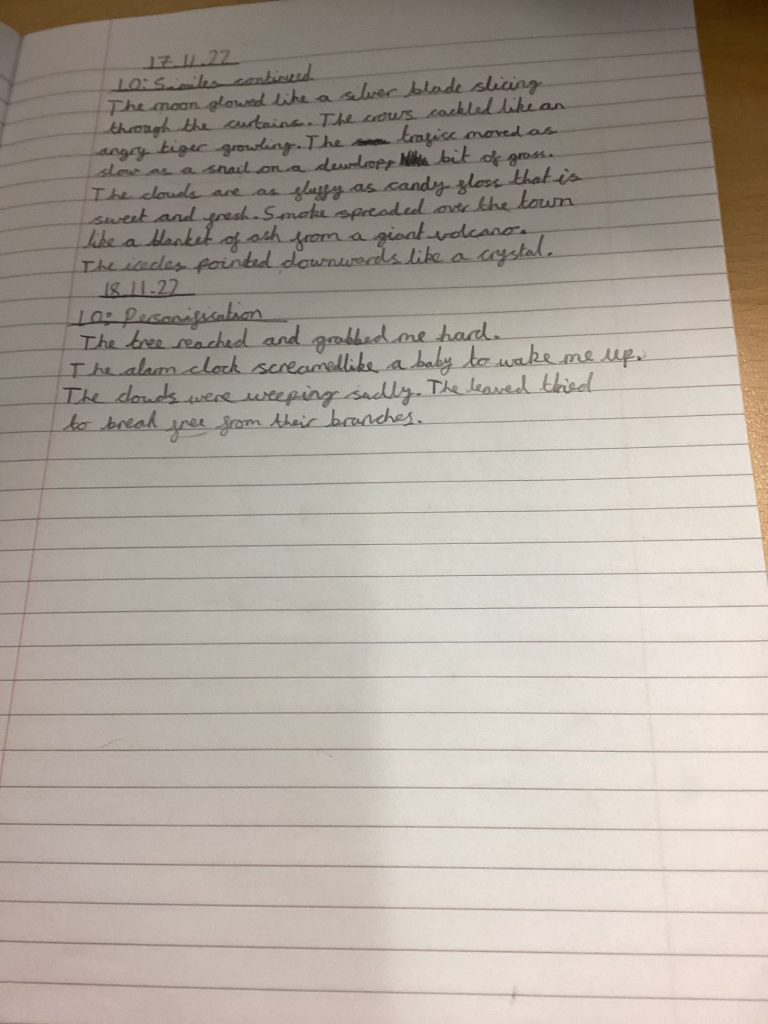 17.11.22
LO: Similes continued
The moon glowed like a silver blade slicing
through the curtains. The crows cackled like an
angry tiger growling. The traffic moved as
slow as a snail on a dewdropp bit of grass.
The clouds are as fluffy as candy floss that is
sweet and fresh. Smoke spreaded over the town
like a blanket of ash from a giant volcano.
The icecles pointed downwards like a crystal.
18.11.22
LO: Personification
The tree reached and grabbed me hard.
The alarm clock screamed like a baby to wake me up.
The clouds were weeping sadly. The leaved tried
to break free from their branches.